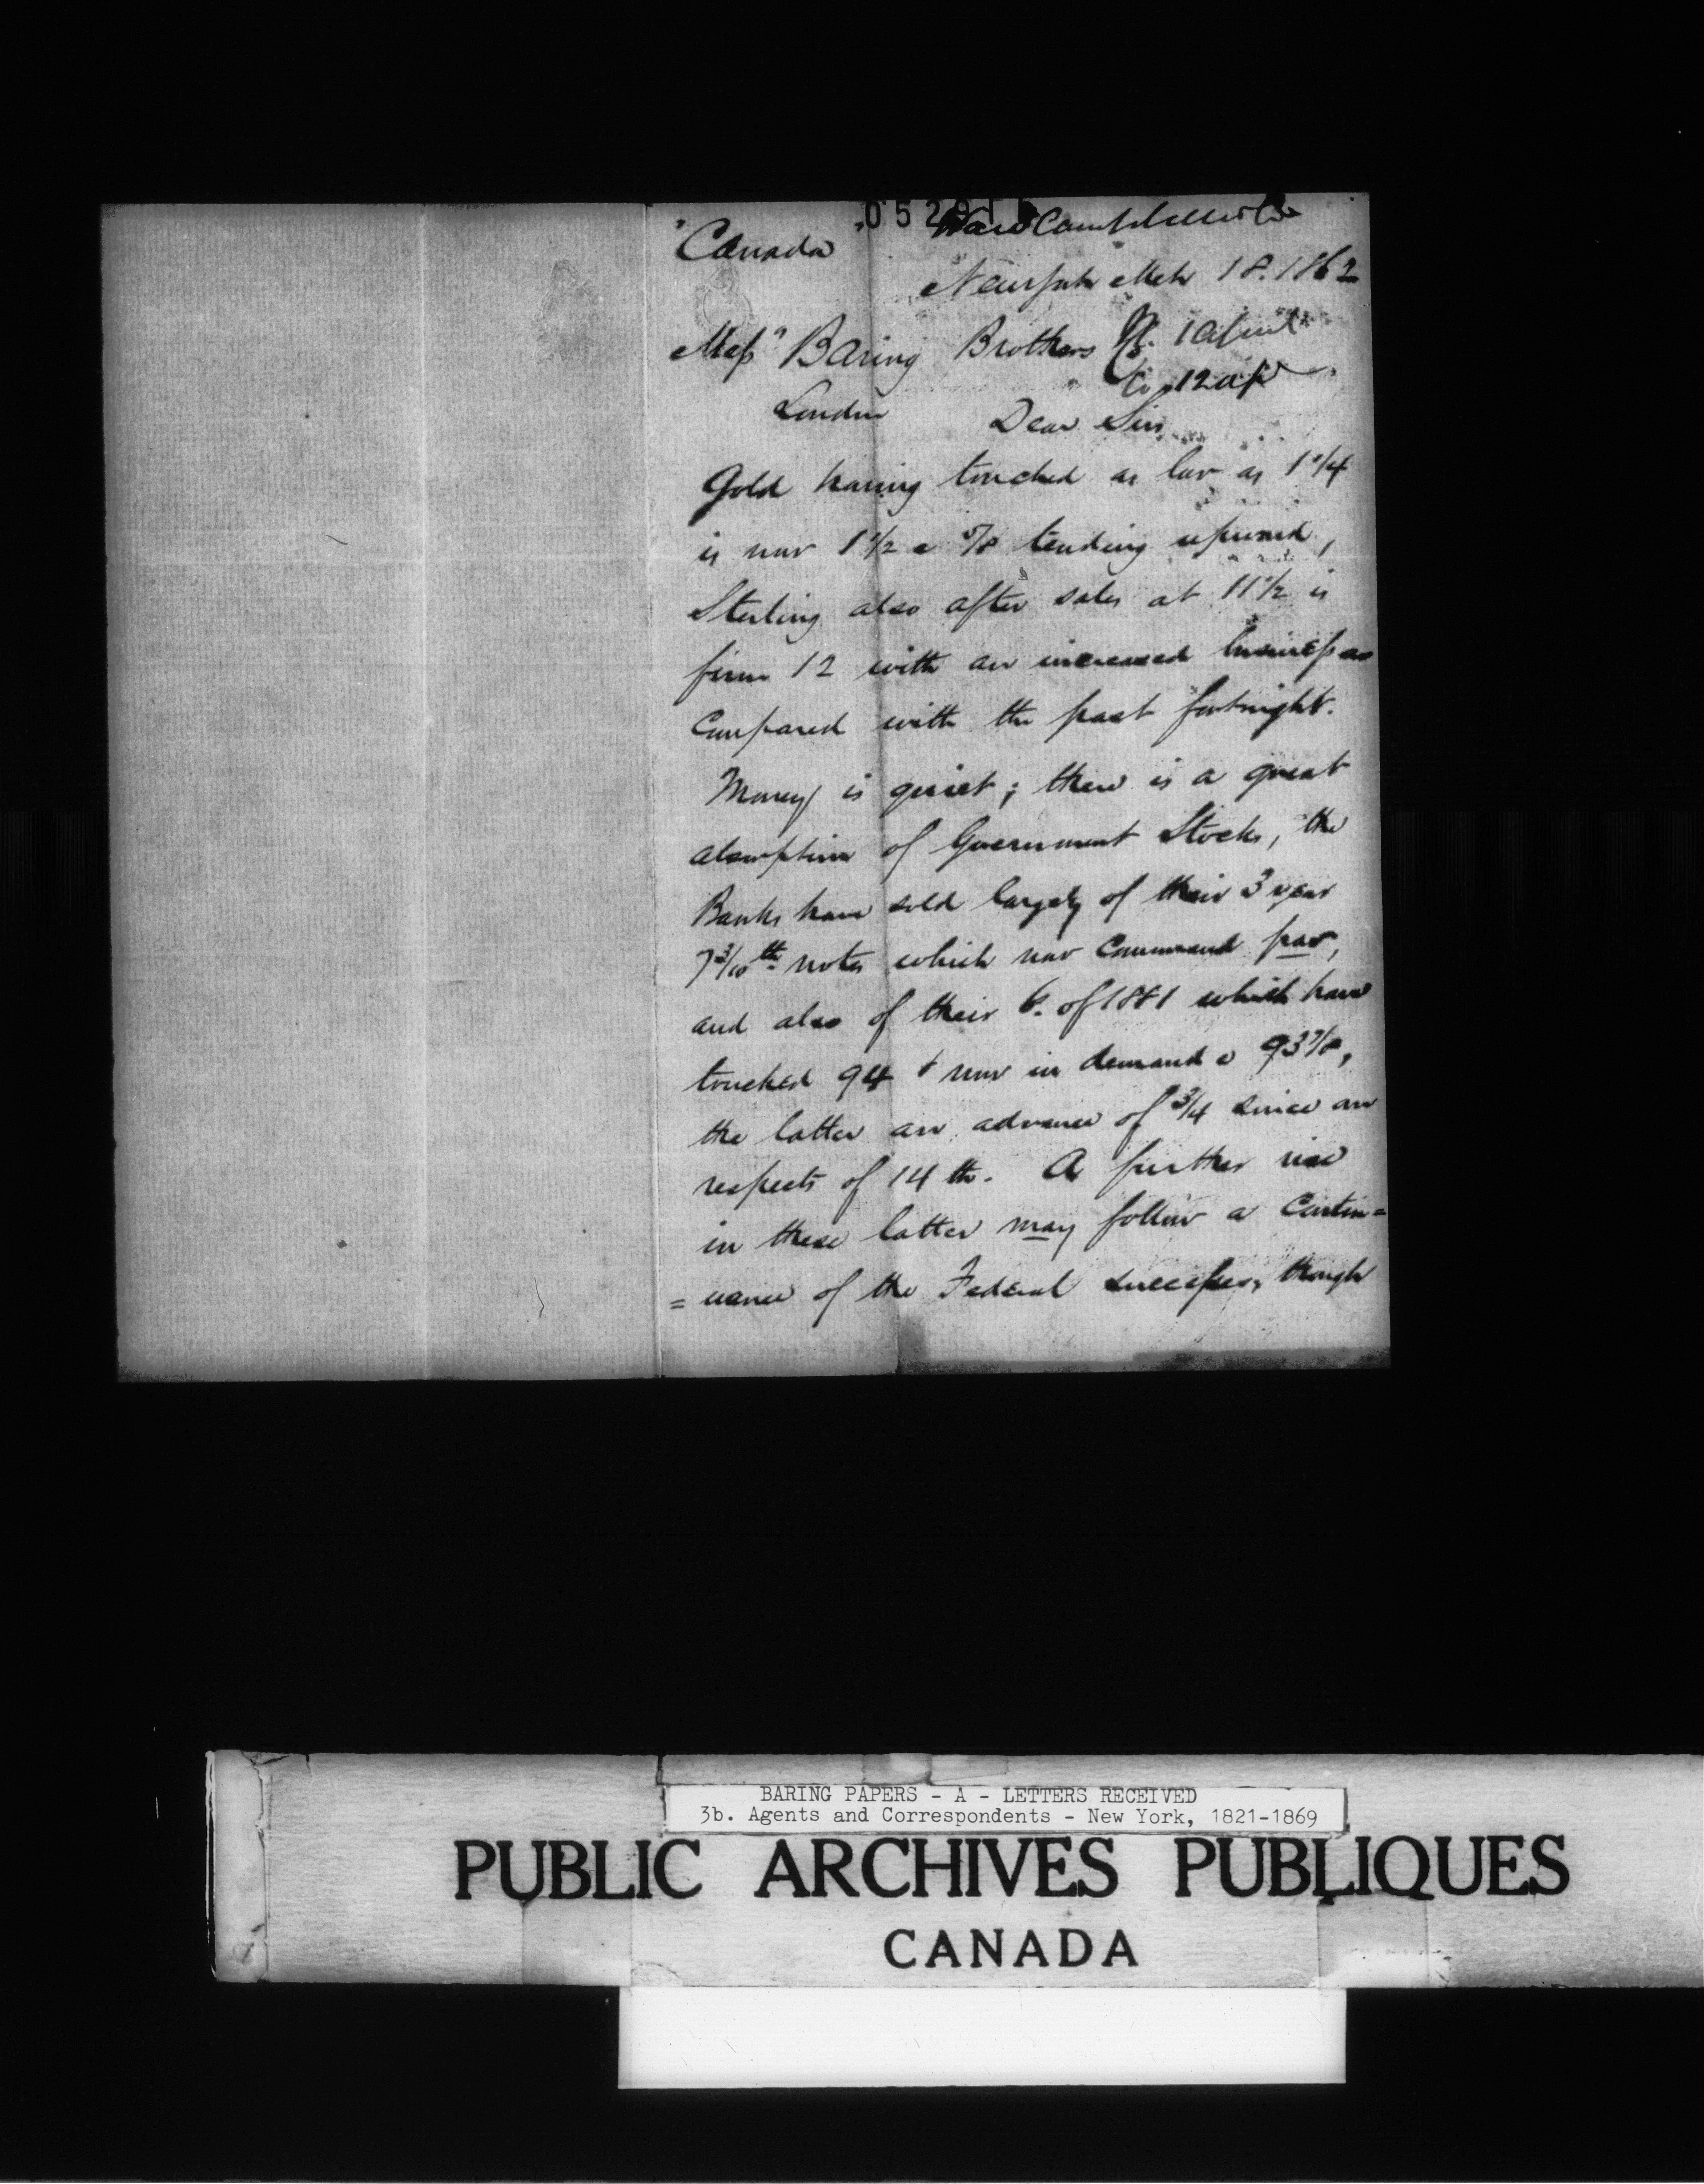 "Canada"
052915
Ward Campbell & Co
New York Mch 18. 1862
Messrs Baring Brothers & Co
R. 1 April
12 Apl
London
Dear Sirs
Gold having touched as low as 1 1/4
is now 1 1/2 a 5/8 tending upward,
Sterling also after sales at 11 1/2 is
firm 12 with an increased business as
compared with the past fortnight.
Money is quiet; there is a great
absorption of Government Stocks, the
Banks have sold largely of their 3 year
7 3/10th notes which now command par,
and also of their 6. of 1881 which have
touched 94 & now in demand a 93 7/8,
the latter an advance of 3/4 since our
respects of 14th. A further rise
in these latter may follow a Contin=
=uance of the Federal successes, though
BARING PAPERS - A - LETTERS RECEIVED
3b. Agents and Correspondents - New York, 1821-1869
PUBLIC ARCHIVES PUBLIQUES
CANADA